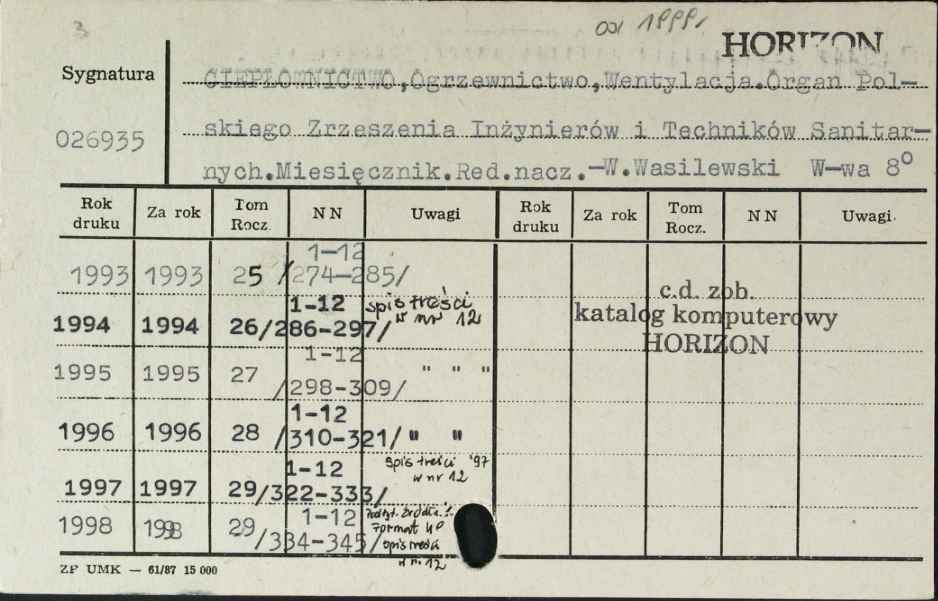 3
od 1999r
HORIZON
Sygnatura
026935
CIEPŁOWNICTWO,Ogrzewnictwo,Wentylacja.Organ Pol-
skiego Zrzeszenia Inżynierów i Techników Sanitar-
nych.Miesięcznik.Red.nacz.-W.Wasilewski W-wa 8°
Rok druku Za rok Tom Rocz. NN Uwagi Rok druku Za rok Tom Rocz. NN Uwagi
1-12
1993 1993 25 /274-285/
1-12 spis treści
1994 1994 26/286-297/ w nr 12
1-12
1995 1995 27 /298-309/ " " "
1-12
1996 1996 28 /310-321/ " "
1-12 spis treści '97
w nr 12
1997 1997 29/322-333/
1998 1998 29 1-12
/334-345/
format
spis treści
w nr 12
c.d. zob.
katalog komputerowy
HORIZON
ZP UMK — 61/87 15 000